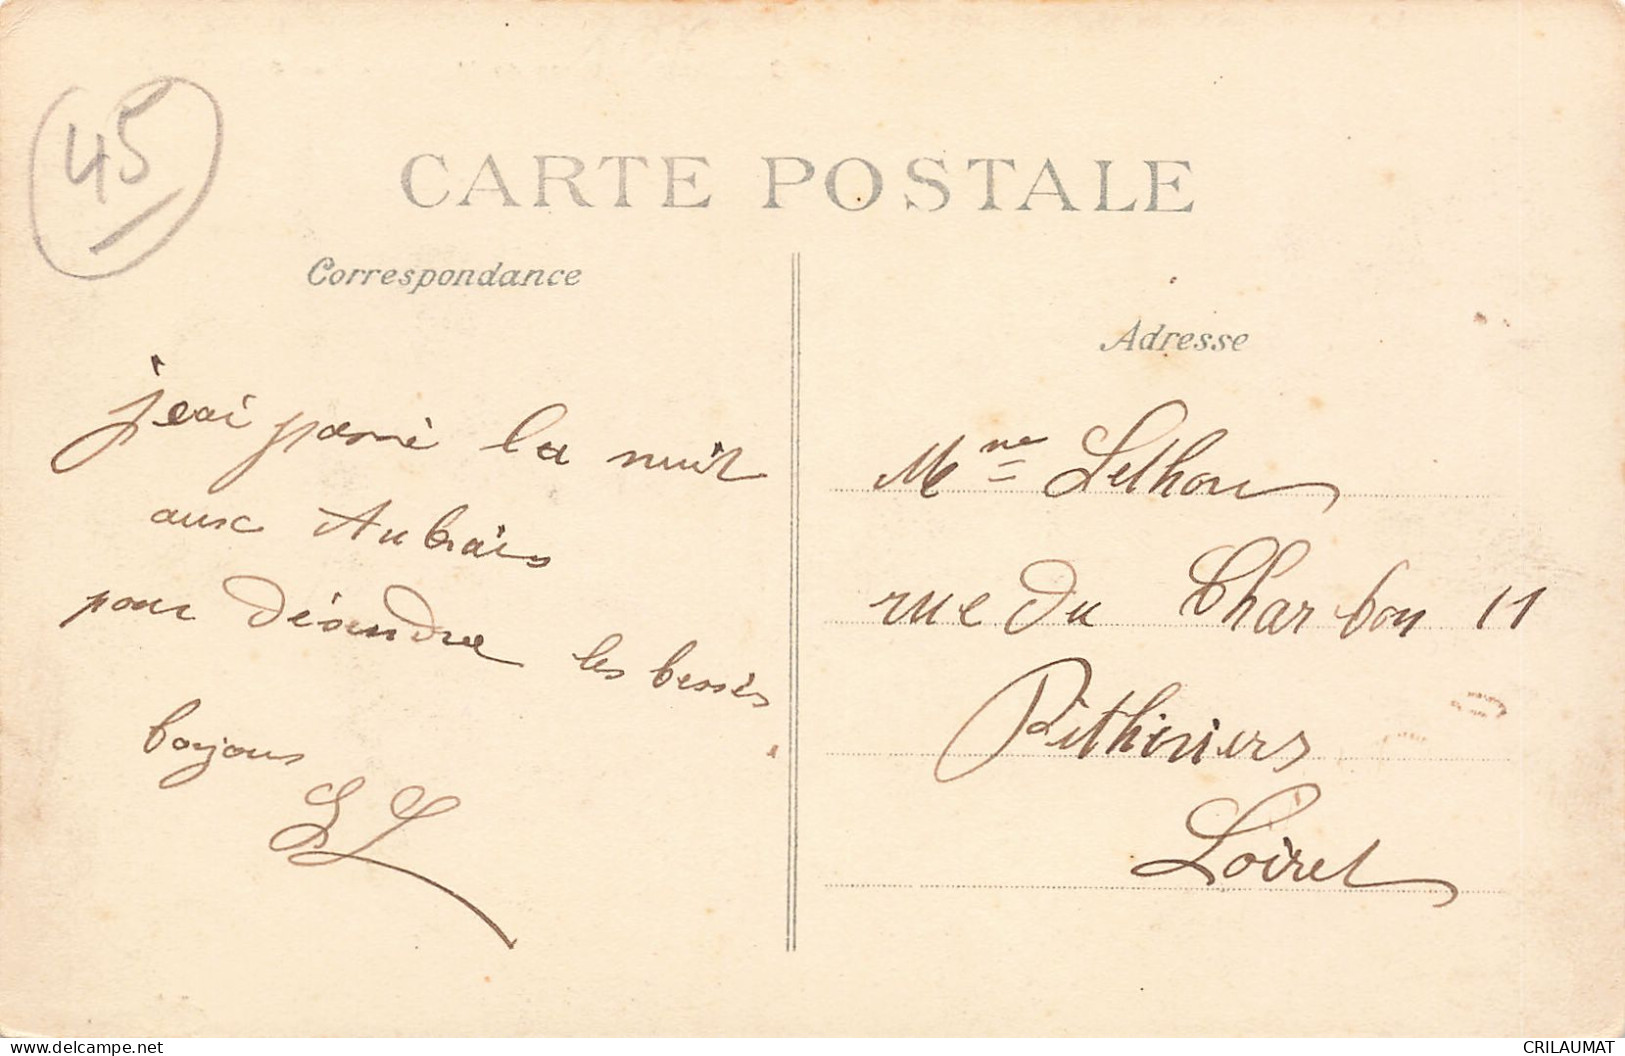 45
CARTE POSTALE
Correspondance
Adresse
jeai passé la nuit
aux Aubrais
pour désendre les bessés
bonjour
L L
Mme Lethou
rue du Charbon 11
Pithiviers
Loiret
www.delcampe.net
CRILAUMAT